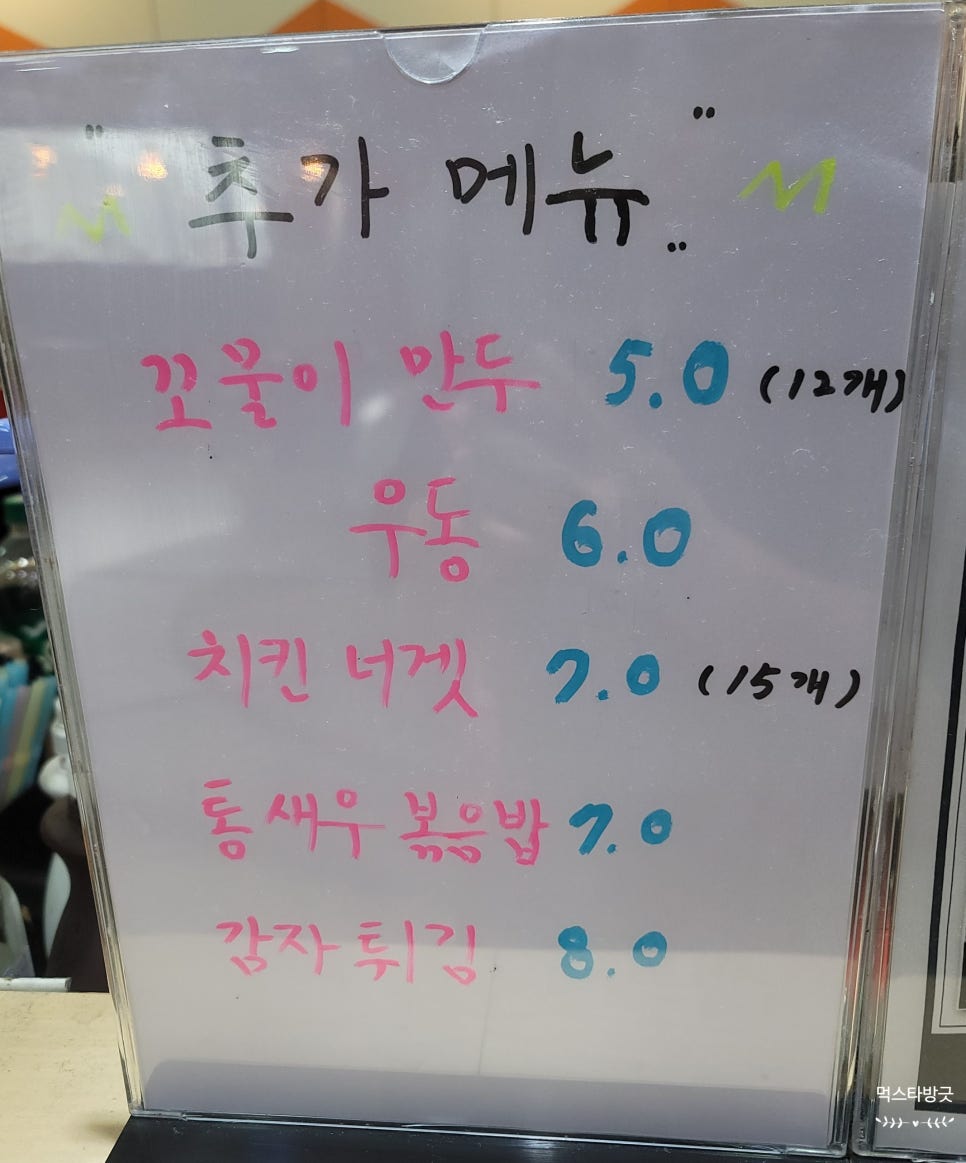 " 추가 메뉴 "
꼬물이 만두 5.0 (12개)
우동 6.0
치킨 너겟 7.0 (15개)
통새우 볶음밥 7.0
감자튀김 8.0
먹스타방긋